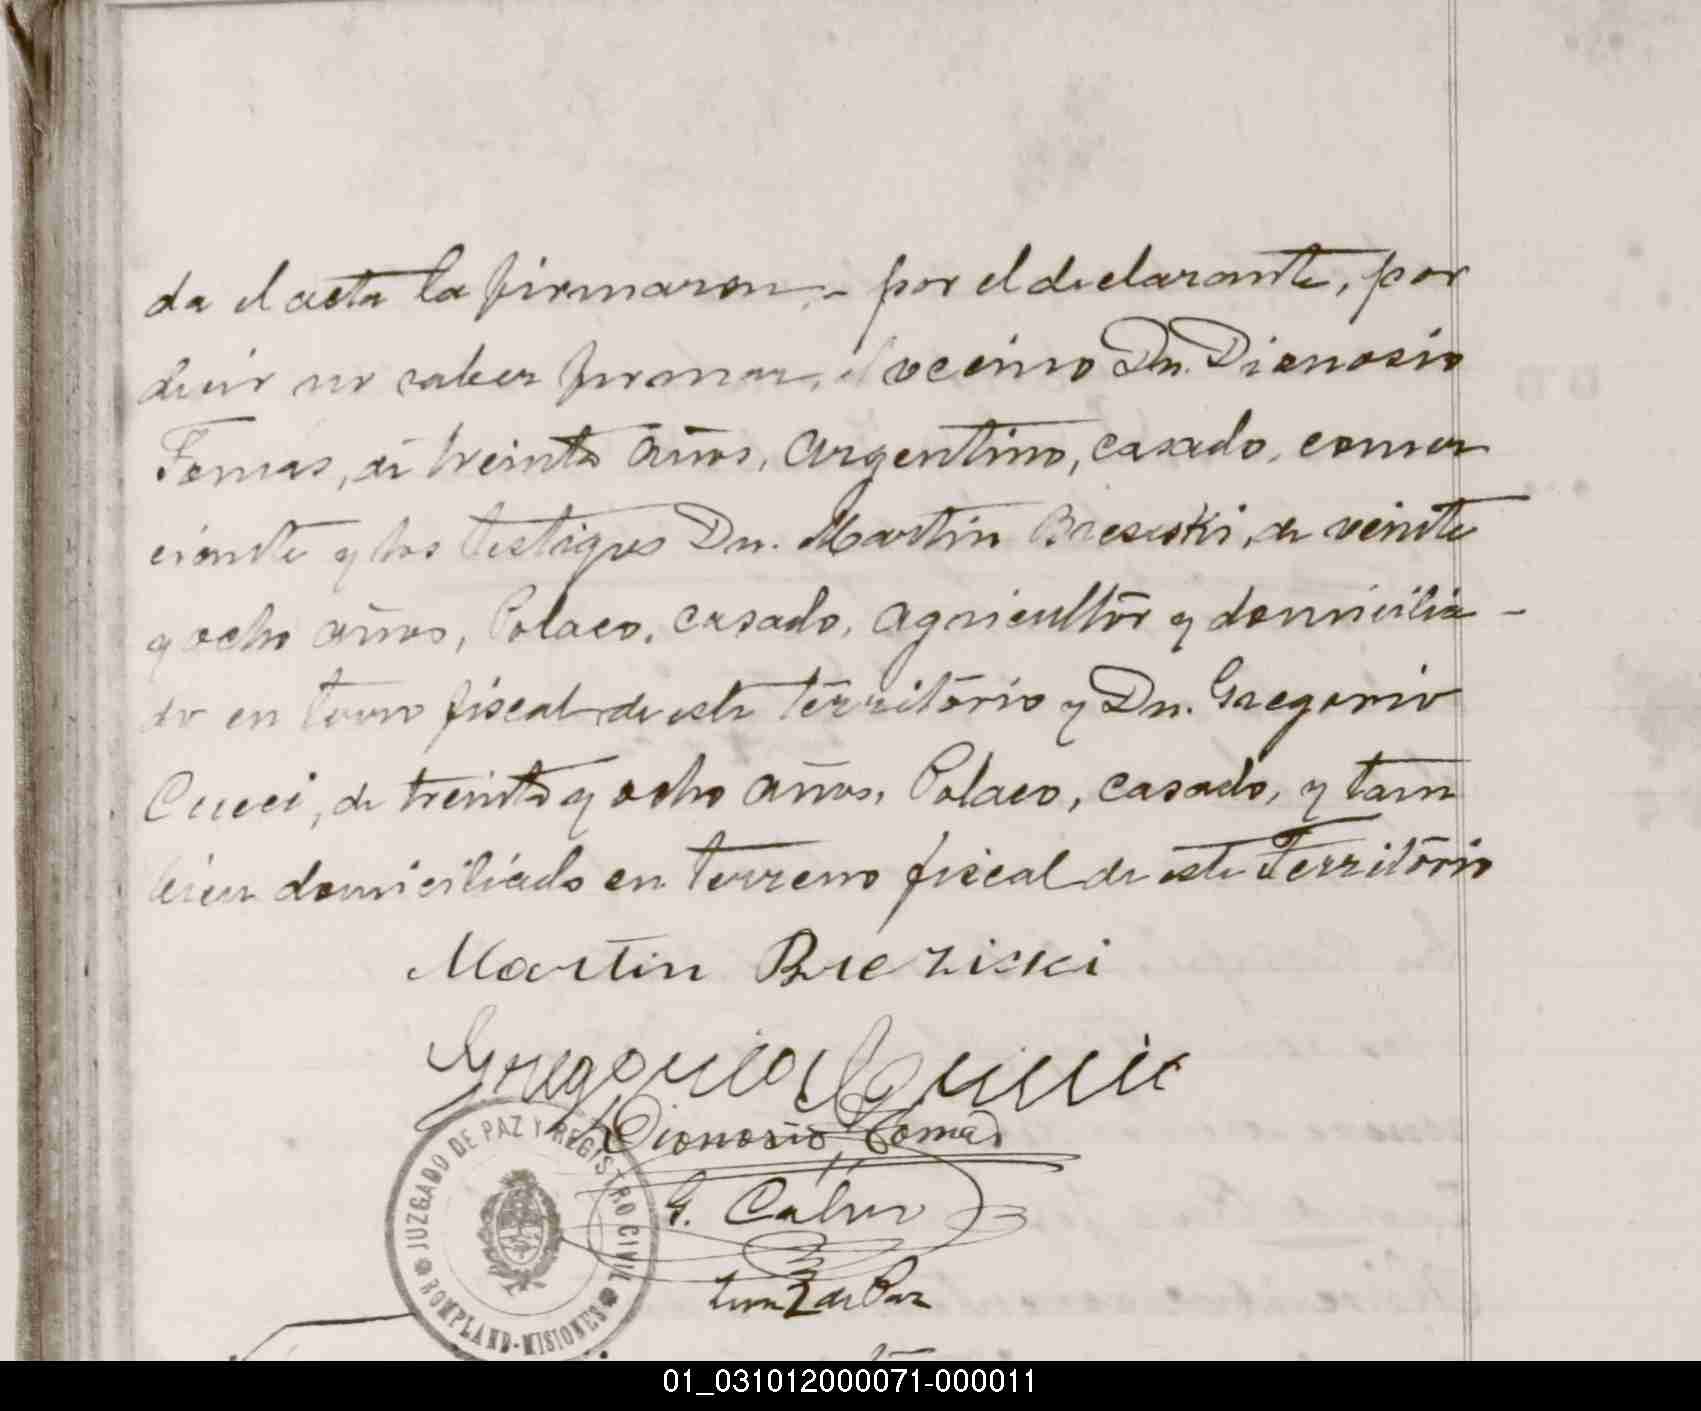 da el acta la firmaron.- por el declarante, por
decir no saber firmar, el vecino Dn. Dionosio
Tomas, de treinta años, Argentino, casado, comer
ciante y los testigos Dn. Martin Breseski, de veinte
y ocho años, Polaco, casado, agricultor y domicilia-
do en terreno fiscal de este territorio y Dn. Gregorio
Cucci, de treinta y ocho años, Polaco, casado, y tam
bien domiciliado en terreno fiscal de este Territorio
Martin Breziski
Gregorio
Dionosio Tomas
G. Calvo
Juez de Paz
JUZGADO DE PAZ Y REGISTRO CIVIL
BOMPLAND-MISIONES
01_031012000071-000011